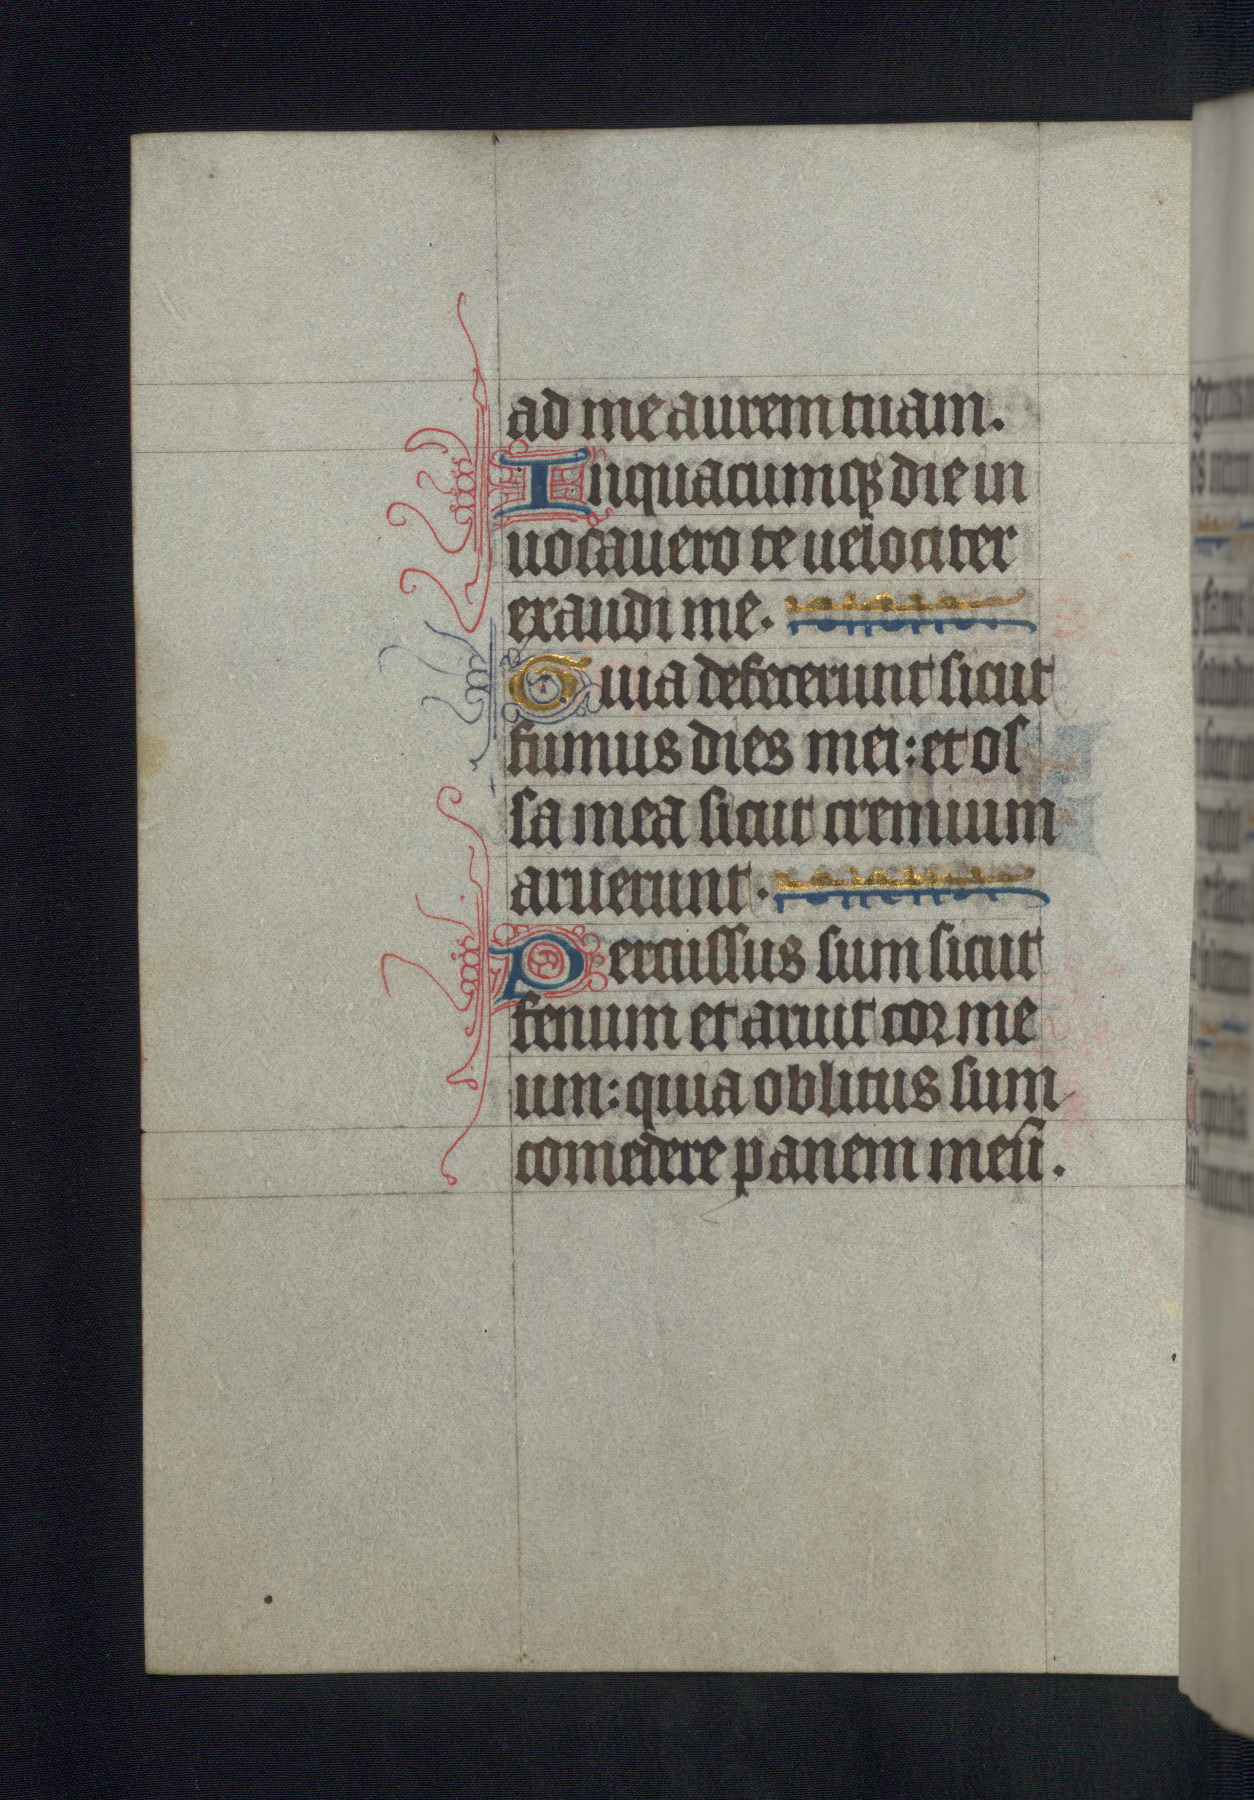 ad me aurem tuam.
In quacumqꝫ die in
uocauero te uelociter
exaudi me.
Quia defecerunt sicut
fumus dies mei: et os
sa mea sicut cremium
aruerunt.
Percussus sum sicut
fenum et aruit cor me
um: quia oblitus sum
comedere panem meū.